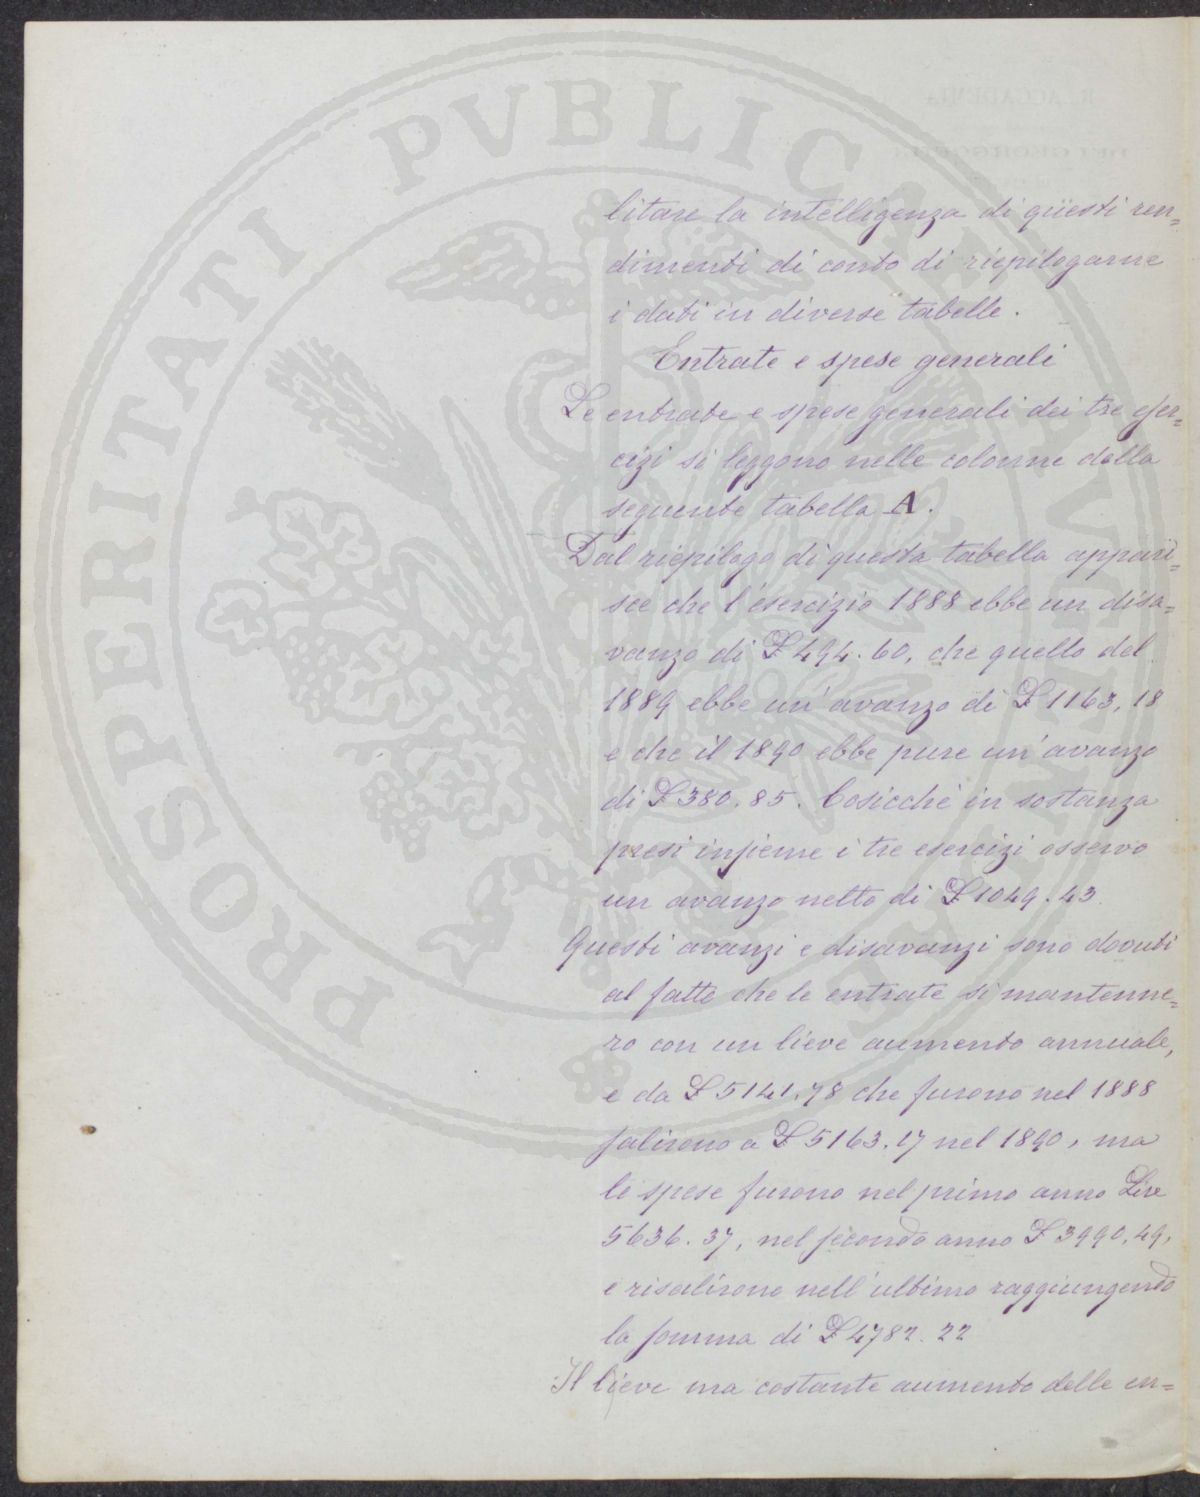 litare la intelligenza di questi ren=
dimenti di conto di riepilogarne
i dati in diverse tabelle.
Entrate e spese generali
Le entrate e spese generali dei tre eser=
cizi si leggono nelle colonne della
seguente tabella A.
Dal riepilogo di questa tabella appari=
sce che l'esercizio 1888 ebbe un disa=
vanzo di £ 494.60, che quello del
1889 ebbe un'avanzo di £ 1163,18
e che il 1890 ebbe pure un'avanzo
di £ 380.85. Cosicchè in sostanza
presi insieme i tre esercizi osservo
un avanzo netto di £ 1049.43
Questi avanzi e disavanzi sono dovuti
al fatto che le entrate si mantenne=
ro con un lieve aumento annuale,
e da £ 5141.78 che furono nel 1888
salirono a £ 5163.17 nel 1890, ma
le spese furono nel primo anno Lire
5636.37, nel secondo anno £ 3990,49,
e risalirono nell'ultimo raggiungendo
la somma di £ 4782.22
Il lieve ma costante aumento delle en=
PROSPERITATI PVBLICAE